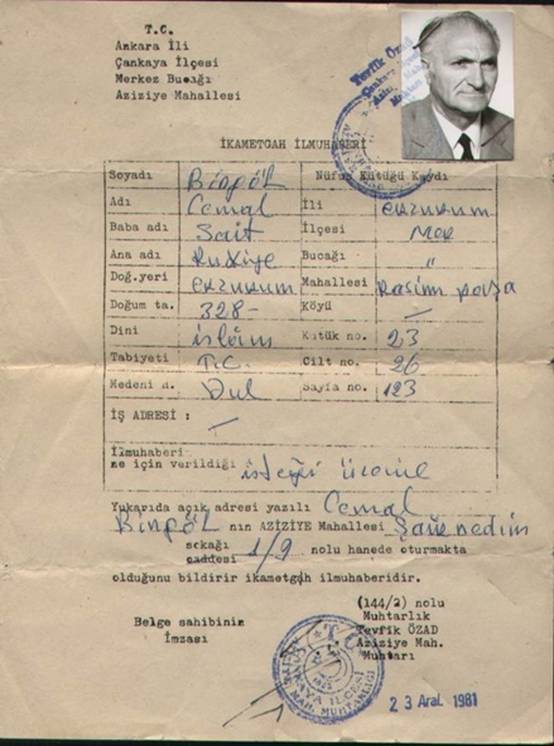 T.C.
Ankara İli
Çankaya İlçesi
Merkez Bucağı
Aziziye Mahallesi
Tevfik Özad
Çankaya İlçesi
İKAMETGAH İLMUHABERİ
Soyadı Bingöl Nüfus Kütüğü Kaydı
Adı Cemal İli Erzurum
Baba adı Sait İlçesi Mer
Ana adı Rukiye Bucağı "
Doğ.yeri Erzurum Mahallesi Rasim paşa
Doğum ta. 328- Köyü —
Dini islâm Kütük no. 23
Tabiyeti T.C. Cilt no. 26
Medeni d. Dul Sayfa no. 123
İŞ ADRESİ : —
İlmuhaberi
ne için verildiği isteği üzerine
Yukarıda açık adresi yazılı Cemal
Bingöl nın AZİZİYE Mahallesi Şair nedim
sokağı
caddesi 1/9 nolu hanede oturmakta
olduğunu bildirir ikametgah ilmuhaberidir.
(144/2) nolu
Muhtarlık
Belge sahibinin Tevfik ÖZAD
İmzası Aziziye Mah.
Muhtarı
T.C.
ÇANKAYA İLÇESİ
MAH. MUHTARLIĞI
23 Aral. 1981